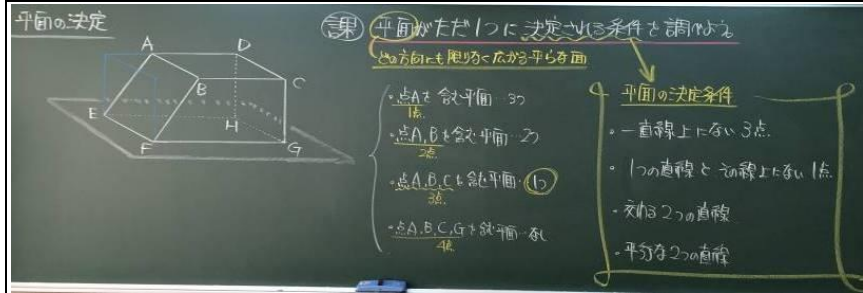 平面の決定
課 平面がただ1つに決定される条件を調べよう
どの方向にも限りなく広がる平らな面
A
D
B
C
E
H
F
G
・点Aを含む平面…3つ
1点
・点A,Bを含む平面…2つ
2点
・点A,B,Cを含む平面…1つ
3点
・点A,B,C,Gを含む平面…なし
4点
平面の決定条件
・一直線上にない3点
・1つの直線とその線上にない1点
・交わる2つの直線
・平行な2つの直線